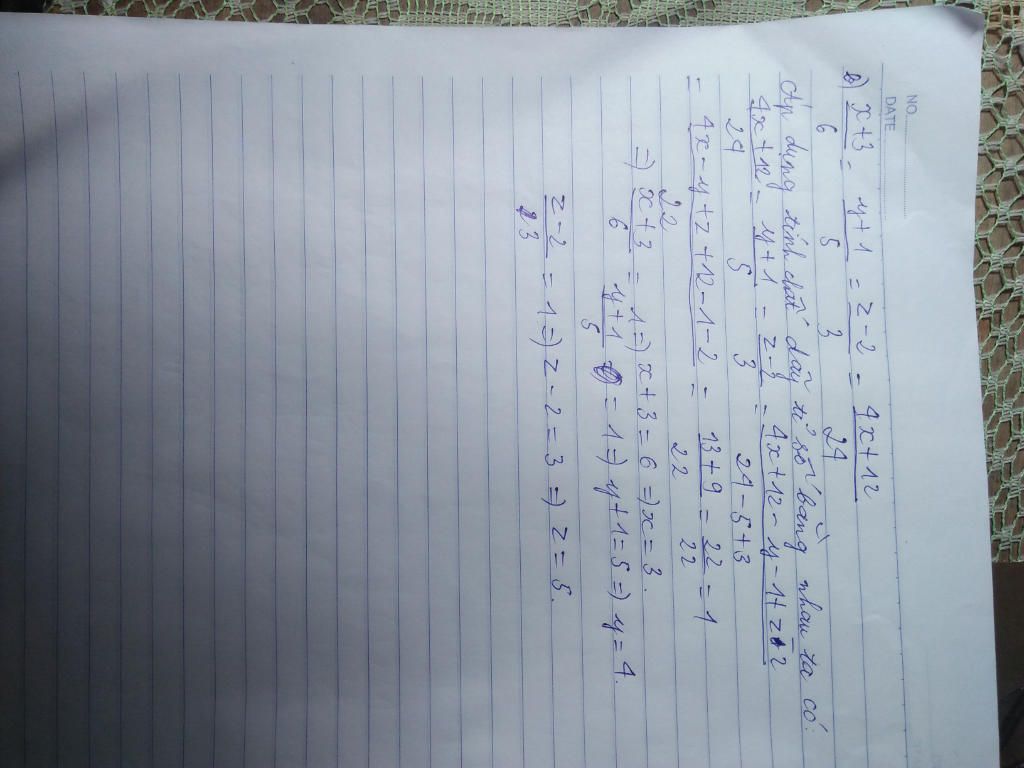 NO.
DATE
b) x+3/6 = y+1/5 = z-2/3 = 4x+12/24
Áp dụng tính chất dãy tỉ số bằng nhau ta có:
4x+12/24 = y+1/5 = z-2/3 = 4x+12-y-1+z-2/24-5+3
= 4x-y+z+12-1-2/22 = 13+9/22 = 22/22 = 1
=) x+3/6 = 1 =) x+3=6 =) x=3.
y+1/5 = 1 =) y+1=5 =) y=4.
z-2/3 = 1 =) z-2=3 =) z=5.